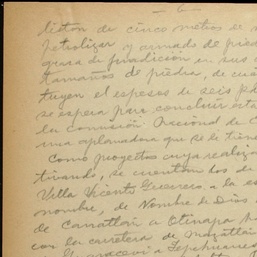 - 6 -
liston de cinco metros de
petrolizar y armado de piedra
grava de fundicion en sus
tamaños de piedra, de cua
tuyen el espesor de seis
se espera para concluir este
la Comisión Nacional de C
una aplanadora que se le tiene
Como proyectos cuya realiza
tivando, se cuentan los de
Villa Vicente Guerrero a la es
nombre, de Nombre de Dios
de Canatlán a Otinapa
con la carretera de Mazatlán
a Tepehuanes